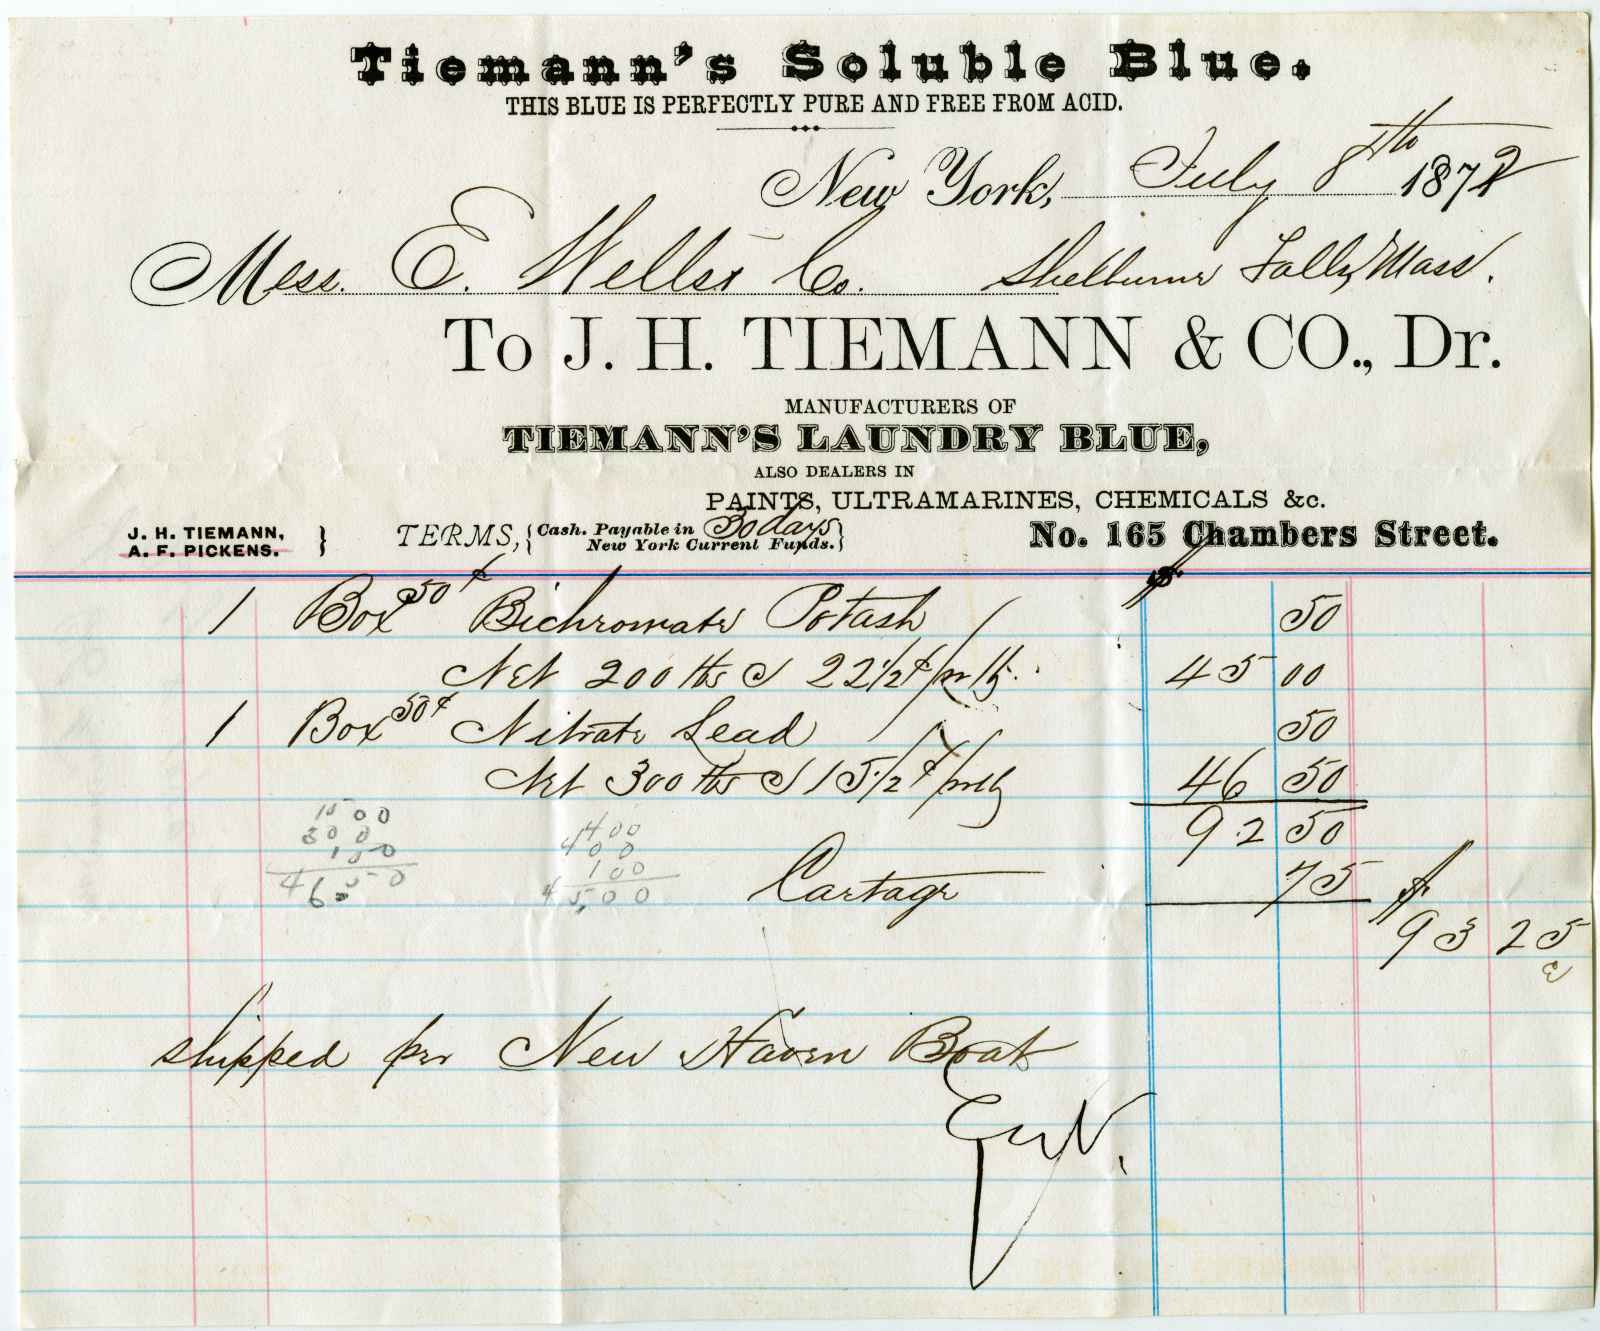 Tiemann's Soluble Blue.
THIS BLUE IS PERFECTLY PURE AND FREE FROM ACID.
New York, July 8th 1872
Mess. E. Wells & Co. Shelburne Falls, Mass.
To J. H. TIEMANN & CO., Dr.
MANUFACTURERS OF
TIEMANN'S LAUNDRY BLUE,
ALSO DEALERS IN
PAINTS, ULTRAMARINES, CHEMICALS &c.
J. H. TIEMANN,
A. F. PICKENS.
TERMS, { Cash. Payable in 30 days
New York Current Funds. }
No. 165 Chambers Street.
1 Box 50¢ Bichromate Potash 50
Net 200 lbs @ 22 1/2 ¢ / pr lb. 45 00
1 Box 50¢ Nitrate Lead 50
Net 300 lbs @ 15 1/2 ¢ / pr lb 46 50
92 50
1500
300 0
150
46.50
4400
00
100
45,00
Cartage 75
$93 25
shipped per New Haven Boat